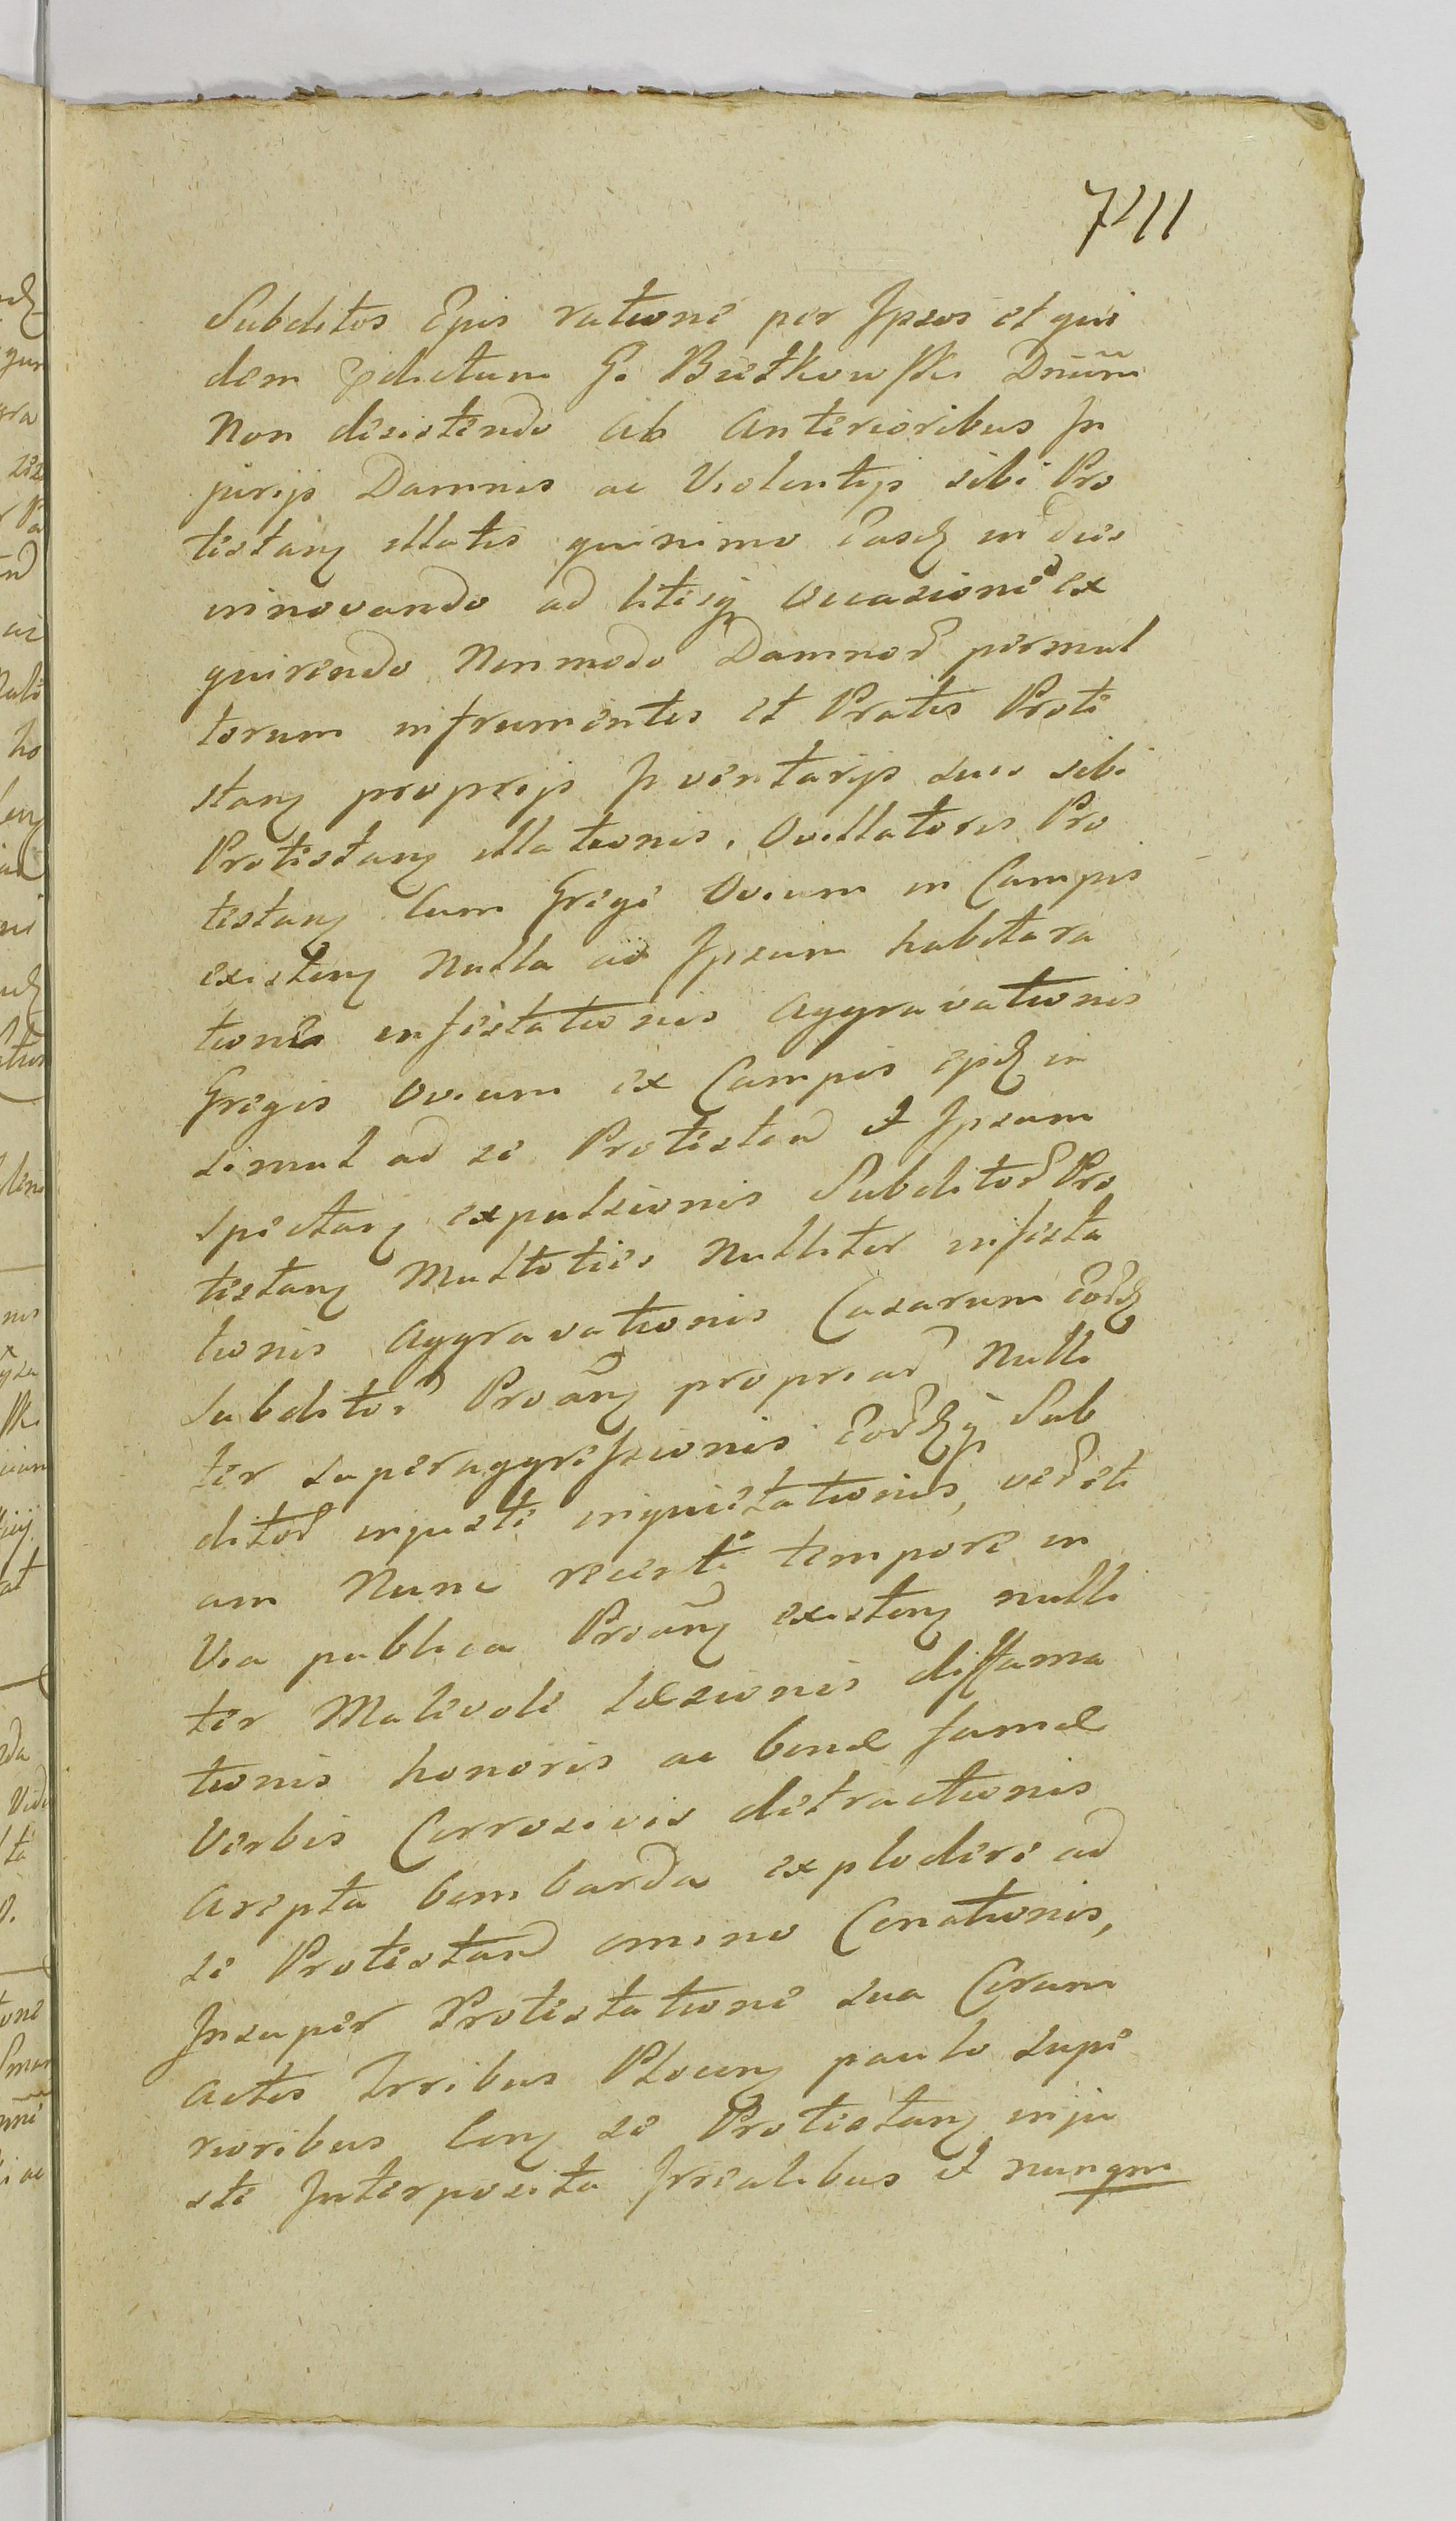 7411
Subditos Epis ratione per Ipsos et qui
dem Edictum G. Bietkowski Dnum
Non desistendo ab anterioribus In
jurijs Damnis ac Violentijs sibi Pro
testanq illatis quinimo easdq in dies
innovando ad litisq occasione ex
quirendo Nonmodo Damnor permul
torum infrumentis et Pratis Prote
stanq proprijs Inventarijs suis sibi
Protestanq illationis, Ovillatoris Pro
testanq Cum Grege Ovium in Campis
existenq Nulla ad Ipsum habita ra
tione infestationis aggravationis
Gregis Ovium ex Campis ejdq in
simul ad se Protestan et Ipsum
spectanq expulsionis Subditor Pro
testanq Multoties Nulliter infesta
tionis aggravationis Casarum eordq
Subditor Proanq propriar Nulli
ter superaggressionis eordqq Sub
ditor injuste inquietationis, ver eti
am Nunc recenti tempore in
Via publica Proanq existenq nulli
ter Malevole læsionis diffama
tionis honoris ac bonæ famæ
Verbis Corrosivis detractionis
arepta bombarda explodere ad
se Protestan omino Conationis,
Insuper Protestatione sua Coram
actis Trribus Plocenq paulo supe
rioribus Conq se Protestanq inju
ste Interposita Irrealibus et nunqm